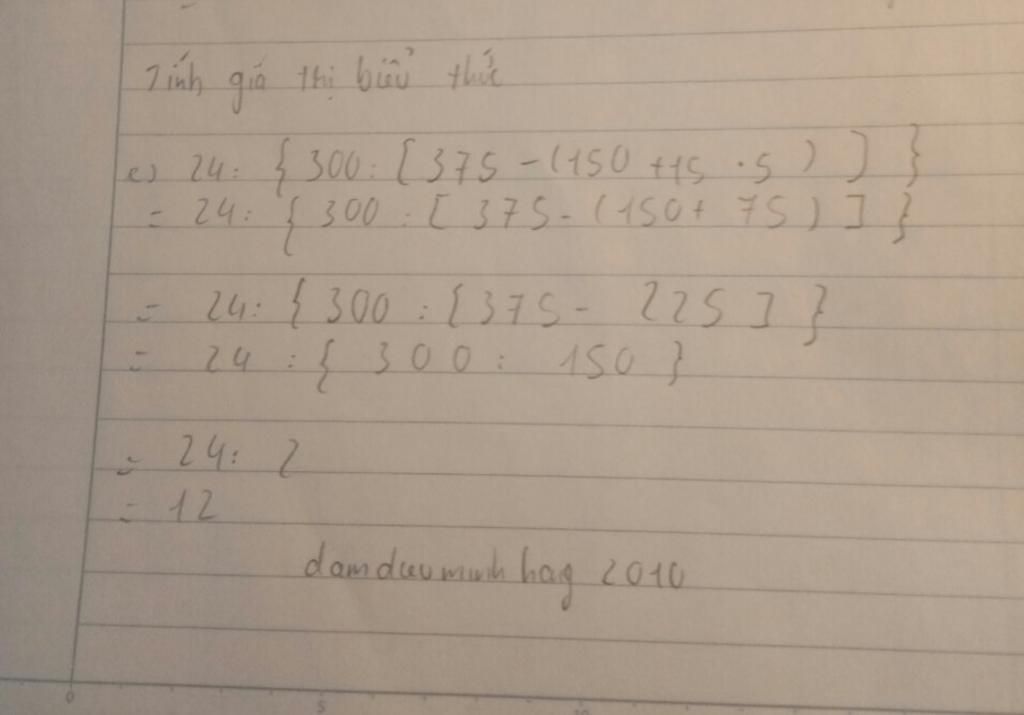 Tính giá thị biểu thức
c) 24: { 300: [ 375 - (150 + 15 . 5 ) ] }
= 24: { 300 : [ 375 - (150 + 75 ) ] }
= 24: { 300 : [ 375 - 225 ] }
= 24 : { 300 : 150 }
= 24: 2
= 12
damdieuminh hag 2010
0 5 10